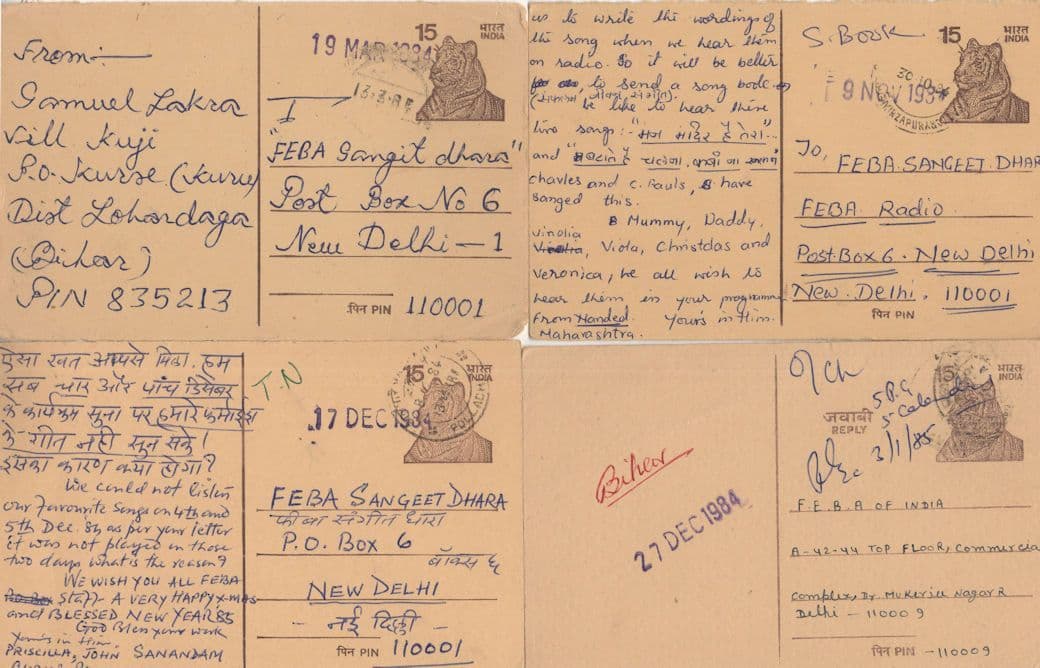 From:—
Samuel Lakra
Vill Kuji
P.O. Kurse (Kuru)
Dist Lohardaga
(Bihar)
PIN 835213
19 MAR 1984
15
भारत
INDIA
"FEBA Sangit dhara"
Post Box No 6
New Delhi – 1
पिन PIN 110001
us to write the wordings of
the song when we hear them
on radio. So it will be better
to send a song book
be like to hear there
two song:- "मन मंदिर है तेरा...
and
Charles and C. Pauls, have
sanged this.
Mummy, Daddy,
Vinolia
Viola, Christdas and
Veronica, we all wish to
hear them in your programme
From Nanded. Your's in Him.
Maharashtra.
S. Book
15
भारत
INDIA
30.10.84
9 NOV 1984
To,
FEBA. SANGEET. DHAR
FEBA Radio.
Post-Box 6. New Delhi
New. Delhi. 110001
पिन PIN
ऐसा खत आपसे मिला. हम
सब चार और पांच डिसेंबर
के कार्यक्रम सुना पर हमारे फर्माइश
के गीत नहीं सुन सके!
इसका कारण क्या होगा?
We could not listen
our favourite songs on 4th and
5th Dec. 84 as per your letter
it was not played on those
two days what is the reason?
WE WISH YOU ALL FEBA
Staff A VERY HAPPY X-MAS
and BLESSED NEW YEAR'85
God Bless your work
Yours in Him
PRISCILLA, JOHN SANANDAM
T.N
17 DEC 1984
15
भारत
INDIA
FEBA SANGEET DHARA
फीबा संगीत धारा
P.O. BOX 6
बॉक्स ६
NEW DELHI
- नई दिल्ली -
पिन PIN 110001
Bihar
27 DEC 1984
15
भारत
INDIA
जवाबी
REPLY
3/1/85
F.E.B.A OF INDIA
A-42-44 TOP FLOOR, Commercia
Complex Dr. Mukerjee Nagar
Delhi – 110009
पिन PIN – 110009